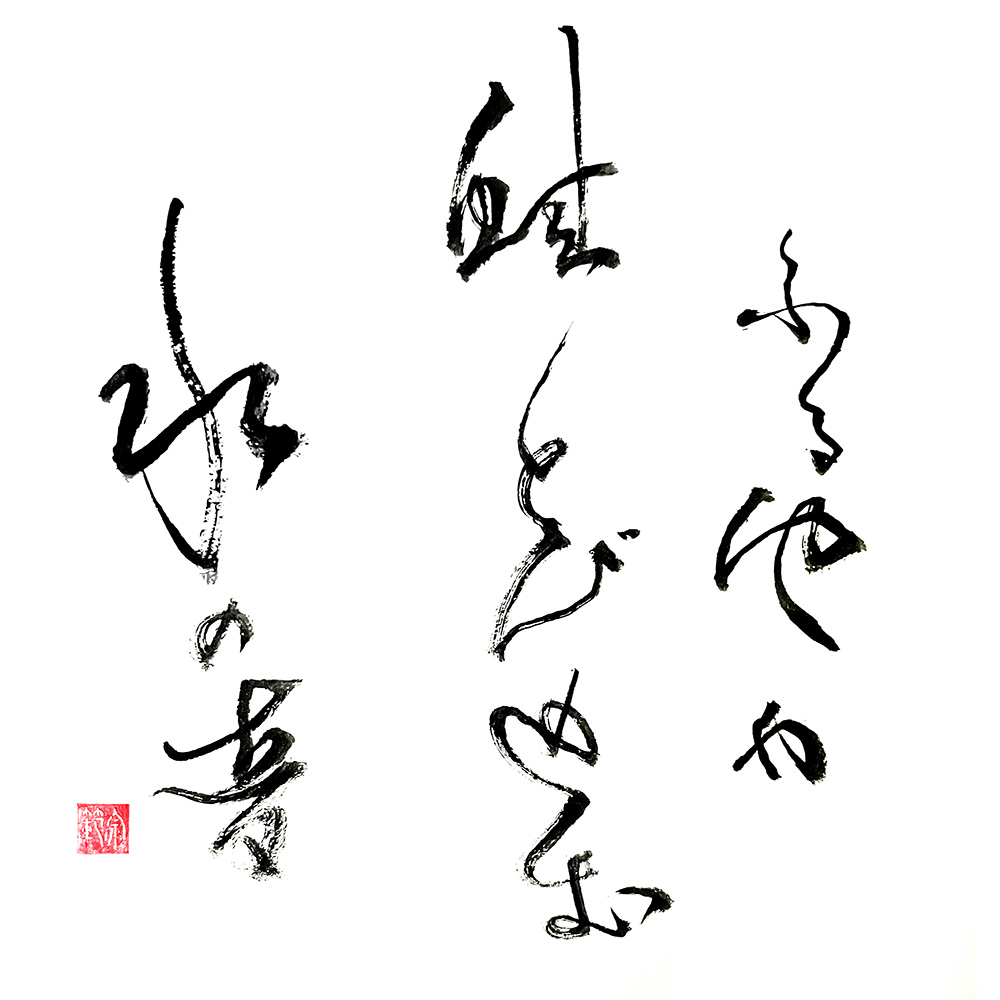 ふる池や
蛙とび込む
水の音